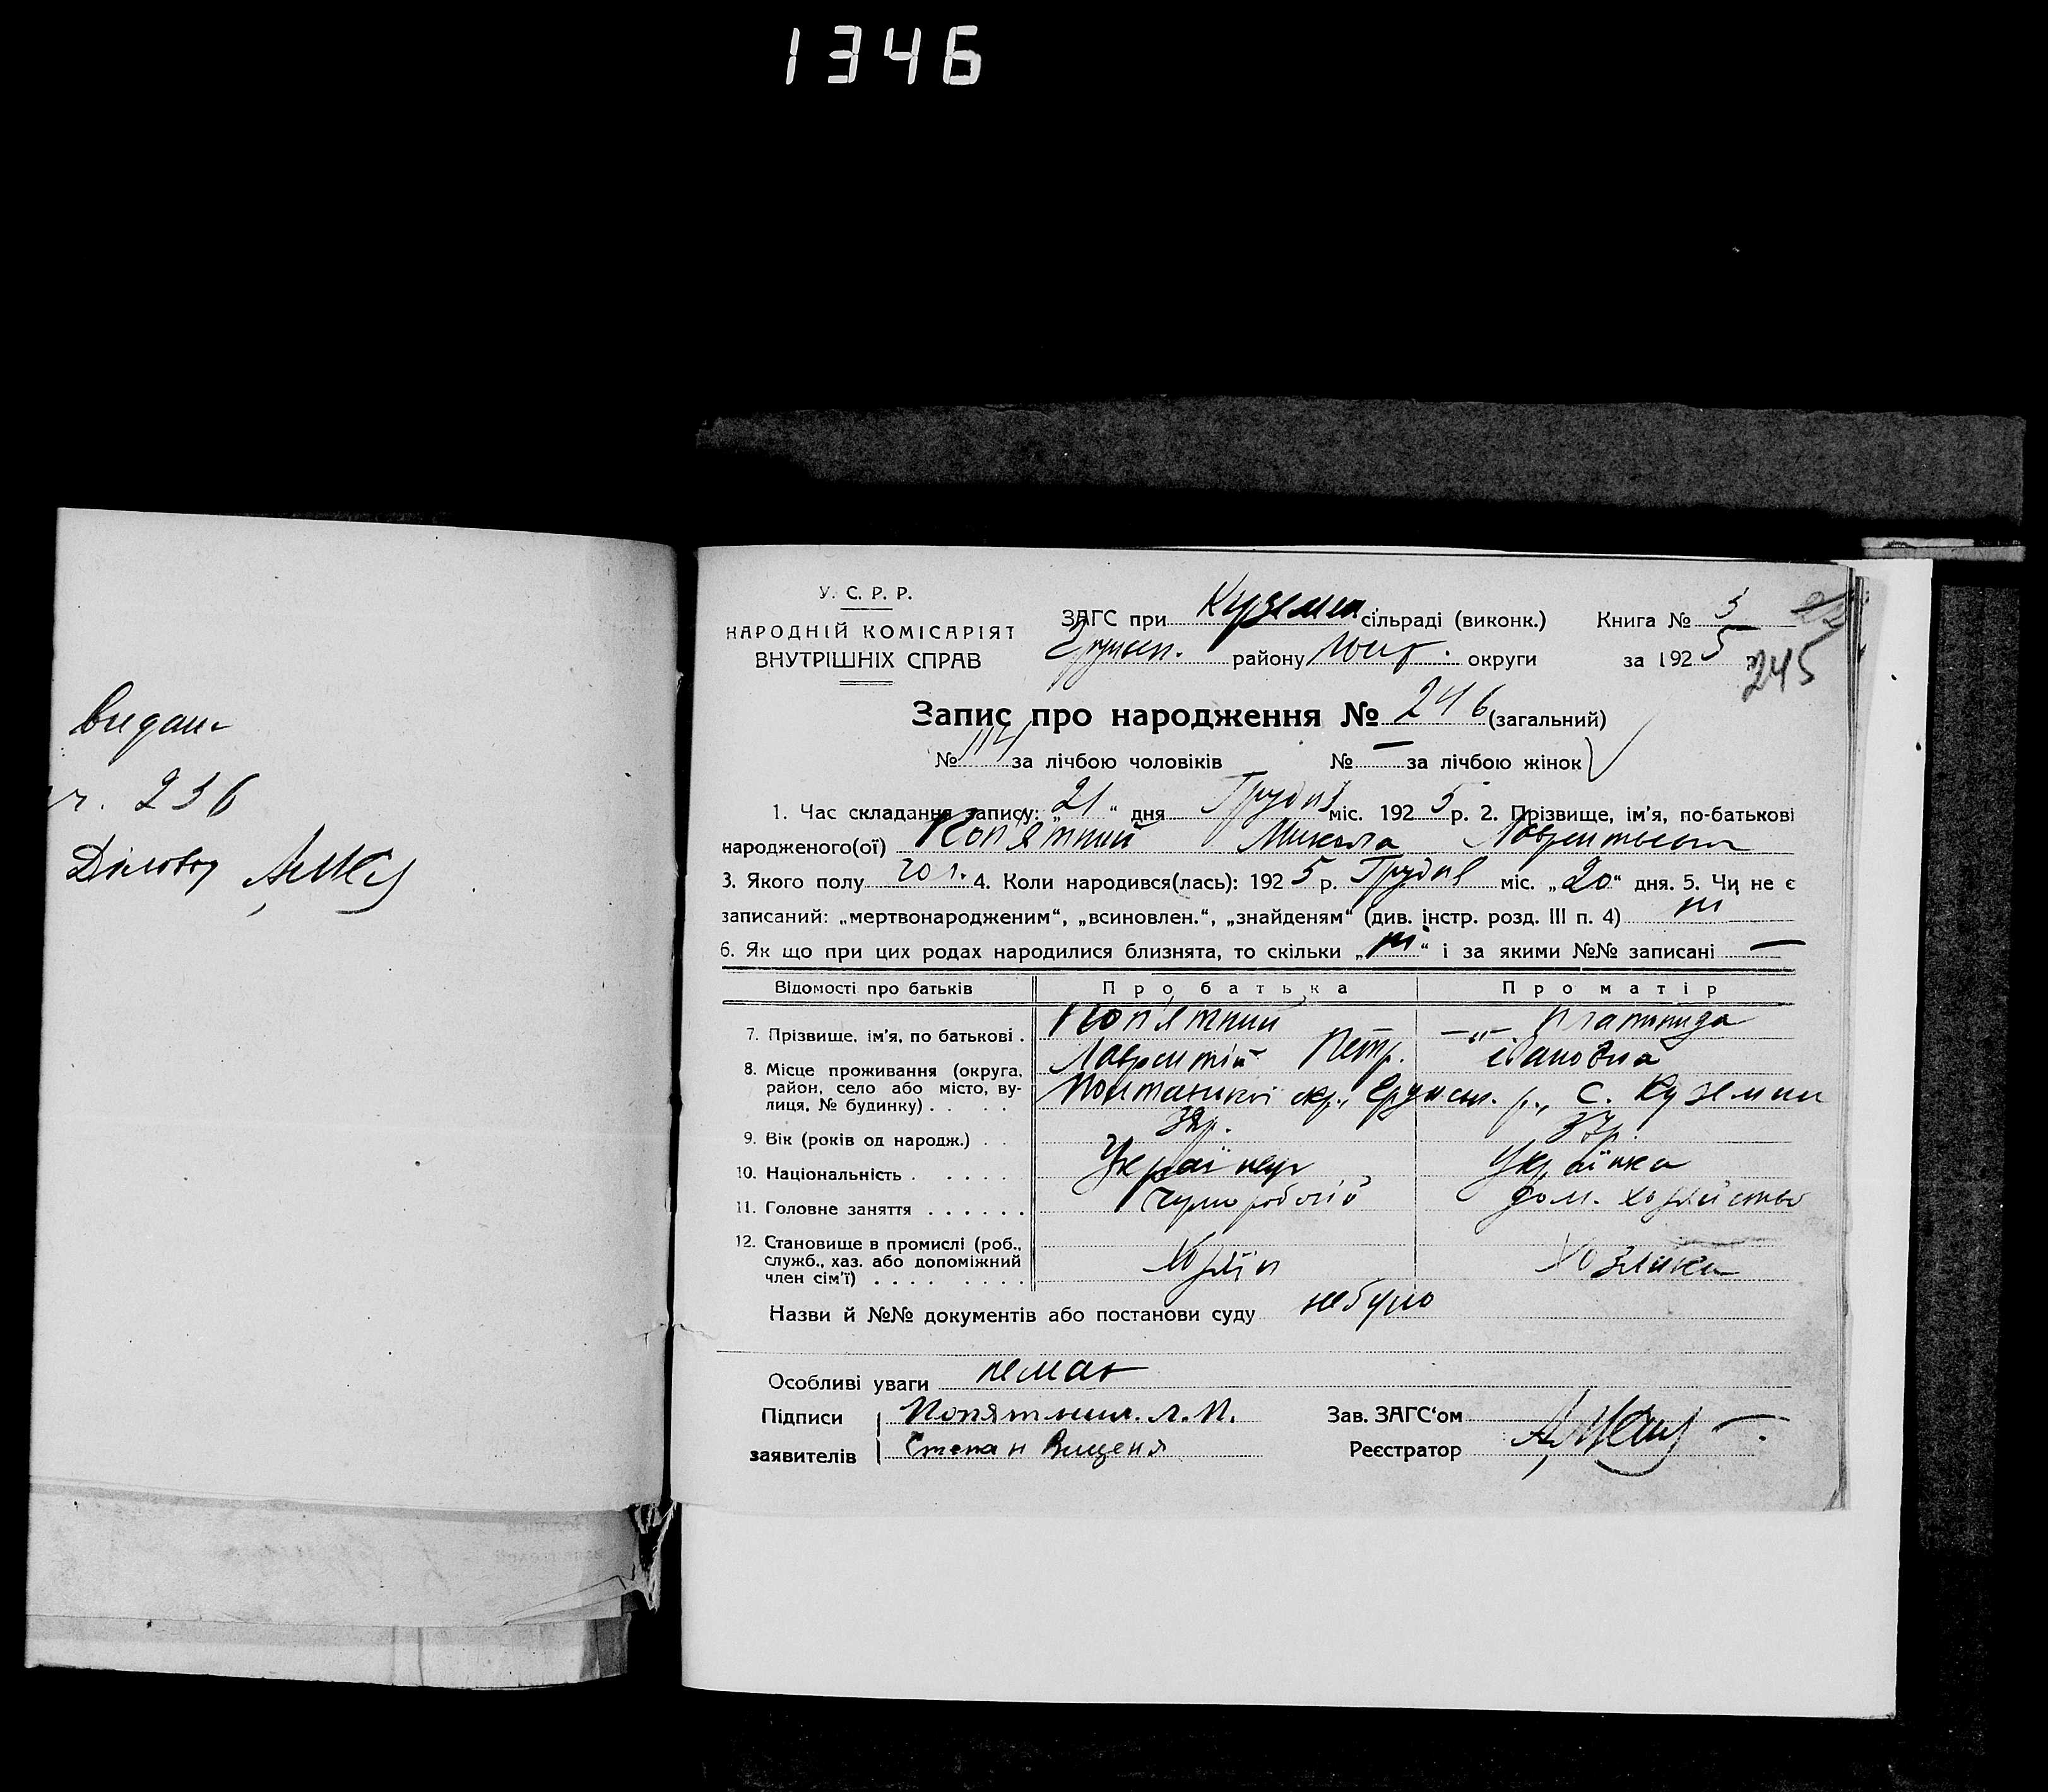 1346
Видано
ч. 236
Діловод
У. С. Р. Р.
НАРОДНІЙ КОМІСАРІЯТ
ВНУТРІШНІХ СПРАВ
ЗАГС при Кузем. сільраді (виконк.) Книга № 3
Грунск. району округи за 1925 р.
245
Запис про народження № 246 (загальний)
№ 114 за лічбою чоловіків № — за лічбою жінок
1. Час складання запису: „21“ дня Грудня міс. 1925 р. 2. Прізвище, ім'я, по-батькові
народженого(ої) Коп'ятний Микола Лаврентьевич
3. Якого полу чол. 4. Коли народився(лась): 1925 р. Грудня міс. „20“ дня. 5. Чи не є
записаний: „мертвонародженим“, „всиновлен.“, „знайденям“ (див. інстр. розд. III п. 4) ні
6. Як що при цих родах народилися близнята, то скільки „ні“ і за якими №№ записані —
Відомості про батьків Про батька Про матір
7. Прізвище, ім'я, по батькові . Коп'ятний Лаврентій Петр. —„— Платонида Івановна
8. Місце проживання (округа, район, село або місто, вулиця, № будинку) . . . Полтавської окр., Грунськ. р., с. Куземин
9. Вік (років од народж.) . . 37р.
10. Національність . . . . . Українець Українка
11. Головне заняття . . . . . . Чорноробочій дом. хозяйство
12. Становище в промислі (роб., служб., хаз. або допоміжний член сім'ї) . . . . . . . . . Хозяїн Хозяйка
Назви й №№ документів або постанови суду небуло
Особливі уваги немає
Підписи Копятний. Л. П. Зав. ЗАГС'ом
заявителів Степан Вищеня Реєстратор